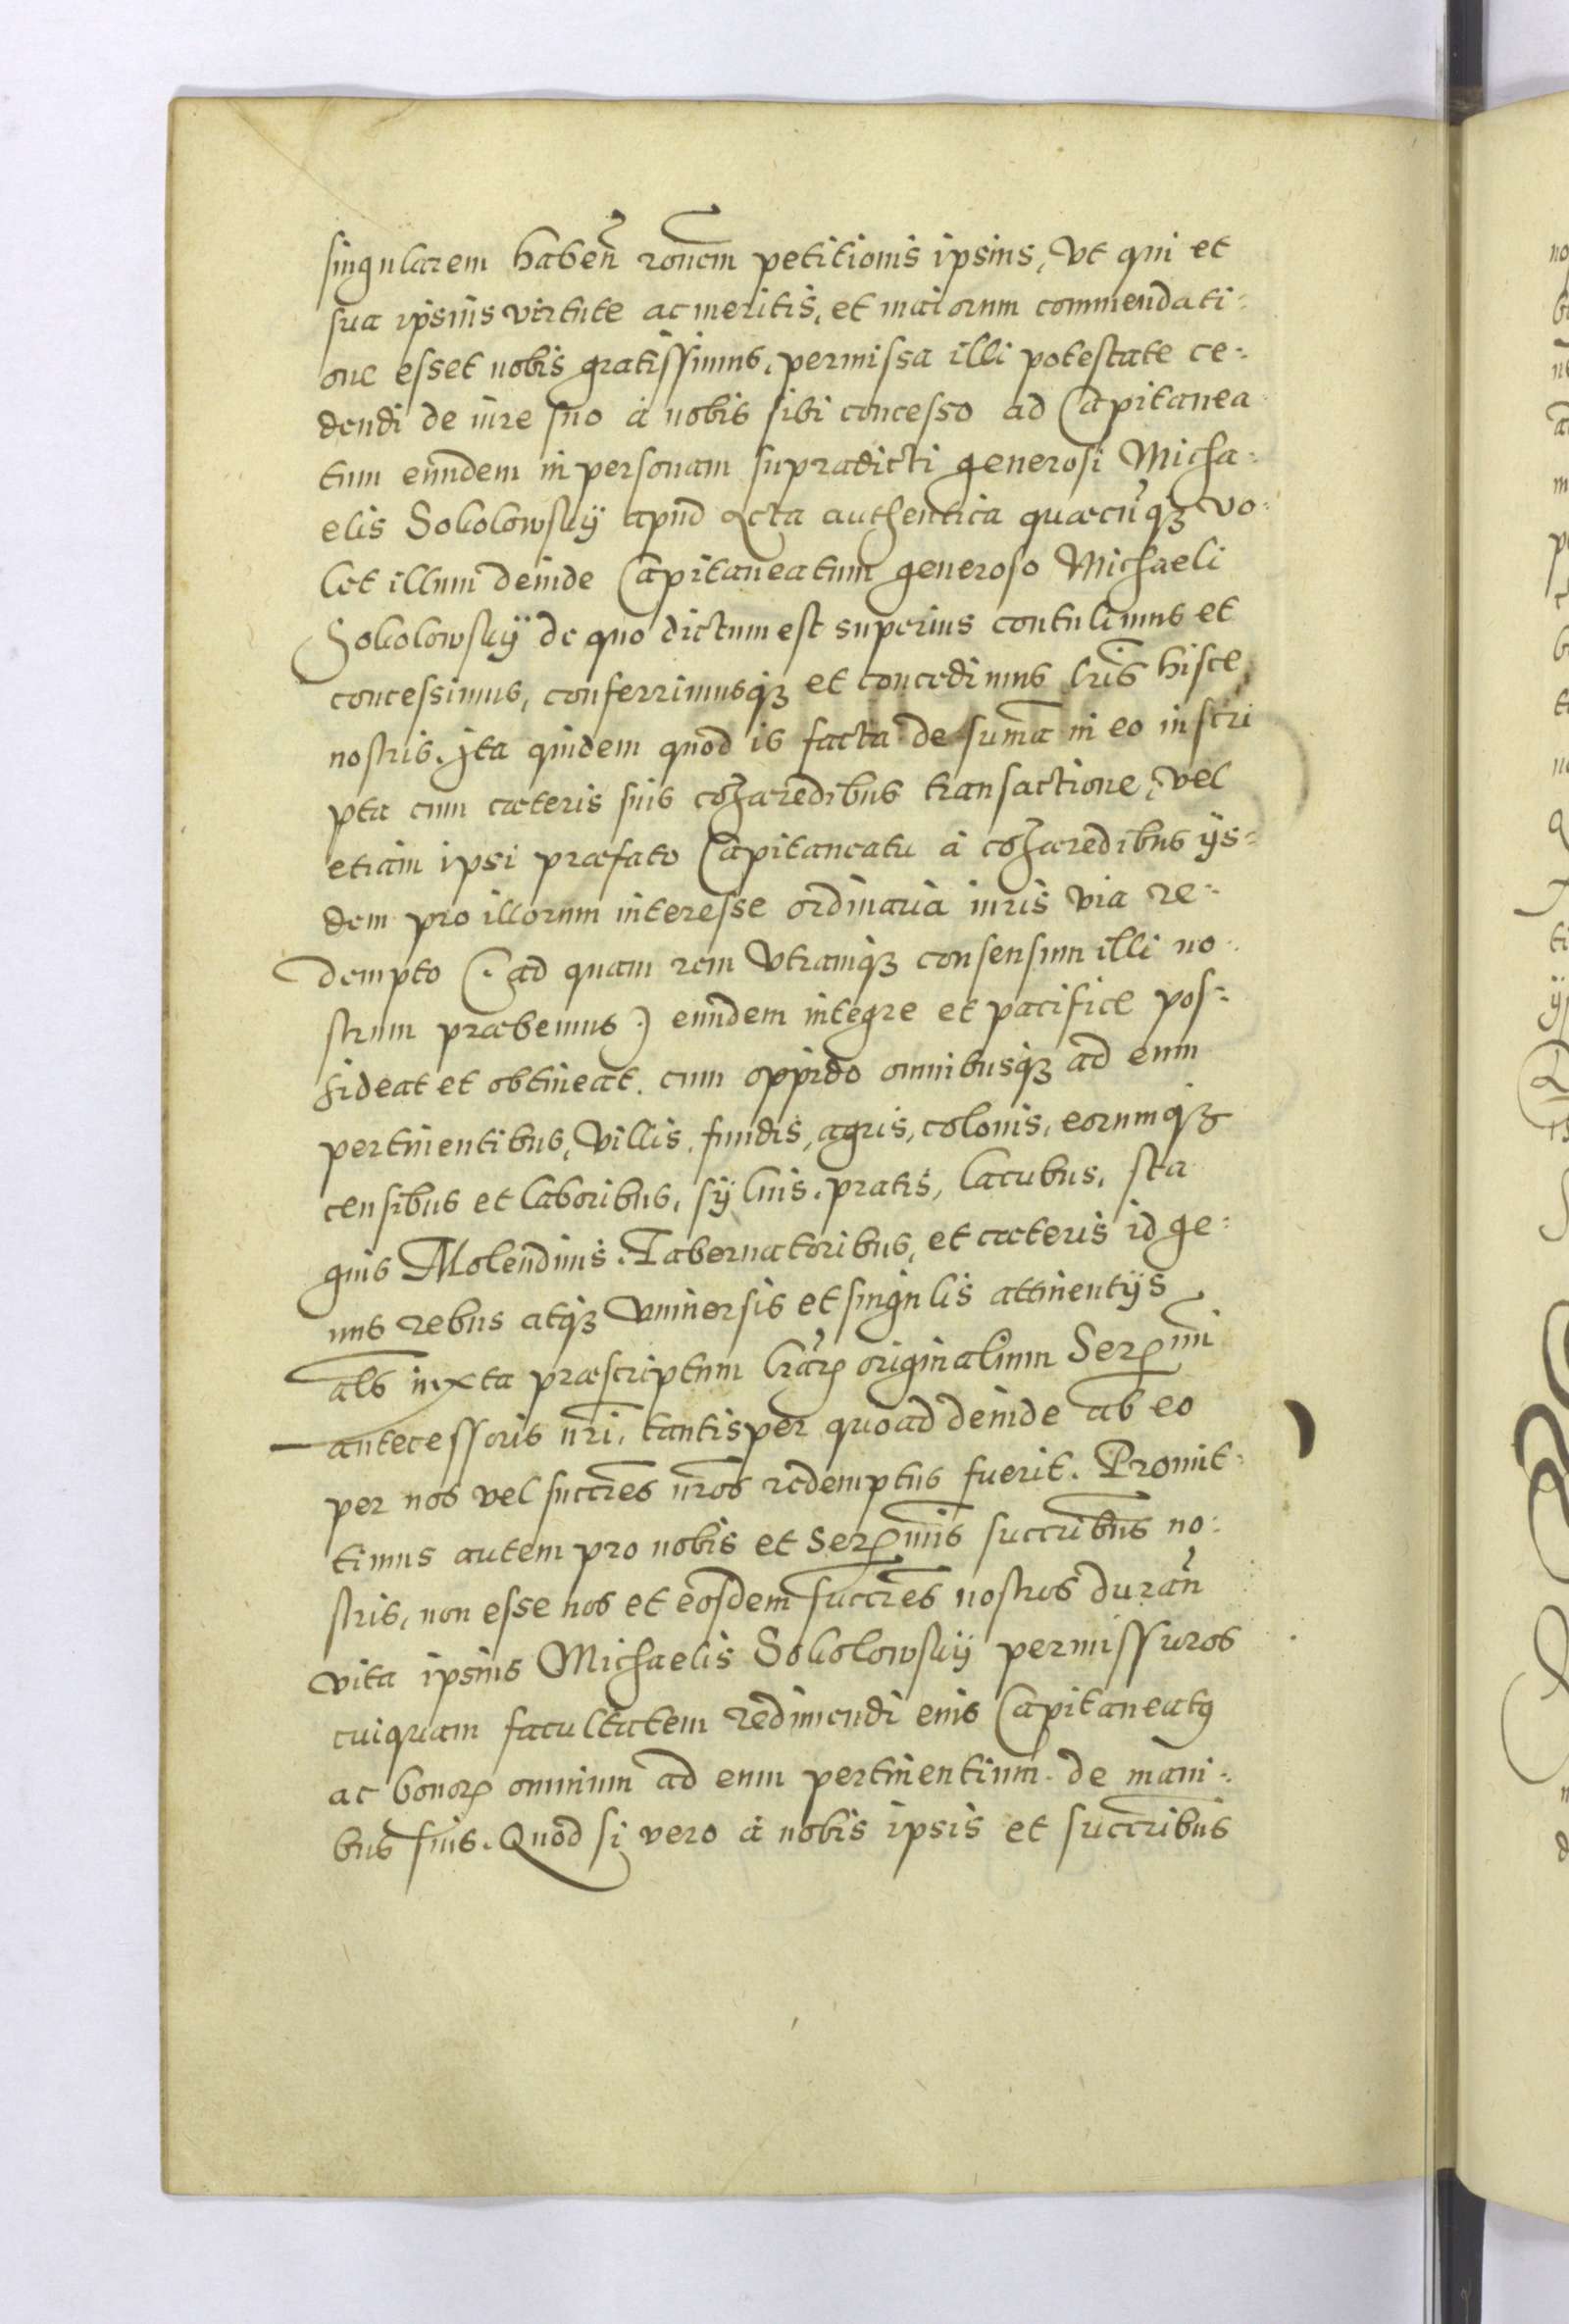 singularem haben̄ rōnem petitionis ipsius, vt qui et
sua ipsius virtute ac meritis, et maiorum commendati-
one esset nobis gratissimus, permissa illi potestate ce-
dendi de iure suo à nobis sibi concesso ad Capitanea
tum eundem in personam supradicti generosi Micha-
elis Sokolowskÿ apud Acta authentica quæcunqꝫ vo-
let illum deinde Capitaneatum generoso Michaeli
Sokolowskÿ de quo dictum est superius contulimus et
concessimus, conferrimusqꝫ et concedimus lr̄is hisce
nostris. Ita quidem quod is facta de sum̄a in eo inscri
pta cum cæteris suis cohæredibus transactione, vel
etiam ipsi præfato Capitaneatu à cohæredibus ijs-
dem pro illorum interesse ordinaria iuris via re-
dempto (: ad quam rem vtramqꝫ consensum illi no-
strum præbemus :) eundem integre et pacifice pos-
sideat et obtineat. cum oppido omnibusqꝫ ad eum
pertinentibus, villis, fundis, agris, colonis, eorumqꝫ
censibus et laboribus, sÿluis, pratis, lacubus, sta
gnis Molendinis. Tabernatoribus, et cæteris id ge-
nus rebus atqꝫ vniuersis et singulis attinentijs
als̄ iuxta præscriptum lr̄arꝫ originalium Serꝫmi
antecessoris nr̄i, tantisper quoad deinde ab eo
per nos vel succr̄es nr̄os redemptus fuerit. Promit-
timus autem pro nobis et Serꝫmis succribus no-
stris, non esse nos et eosdem succr̄es nostros duran̄
vita ipsius Michaelis Sokolowskÿ permissuros
cuiquam facultatem redimendi eius Capitaneatꝰ
ac bonorꝫ omnium ad eum pertinentium de mani-
bus suis. Quod si vero à nobis ipsis et succribus